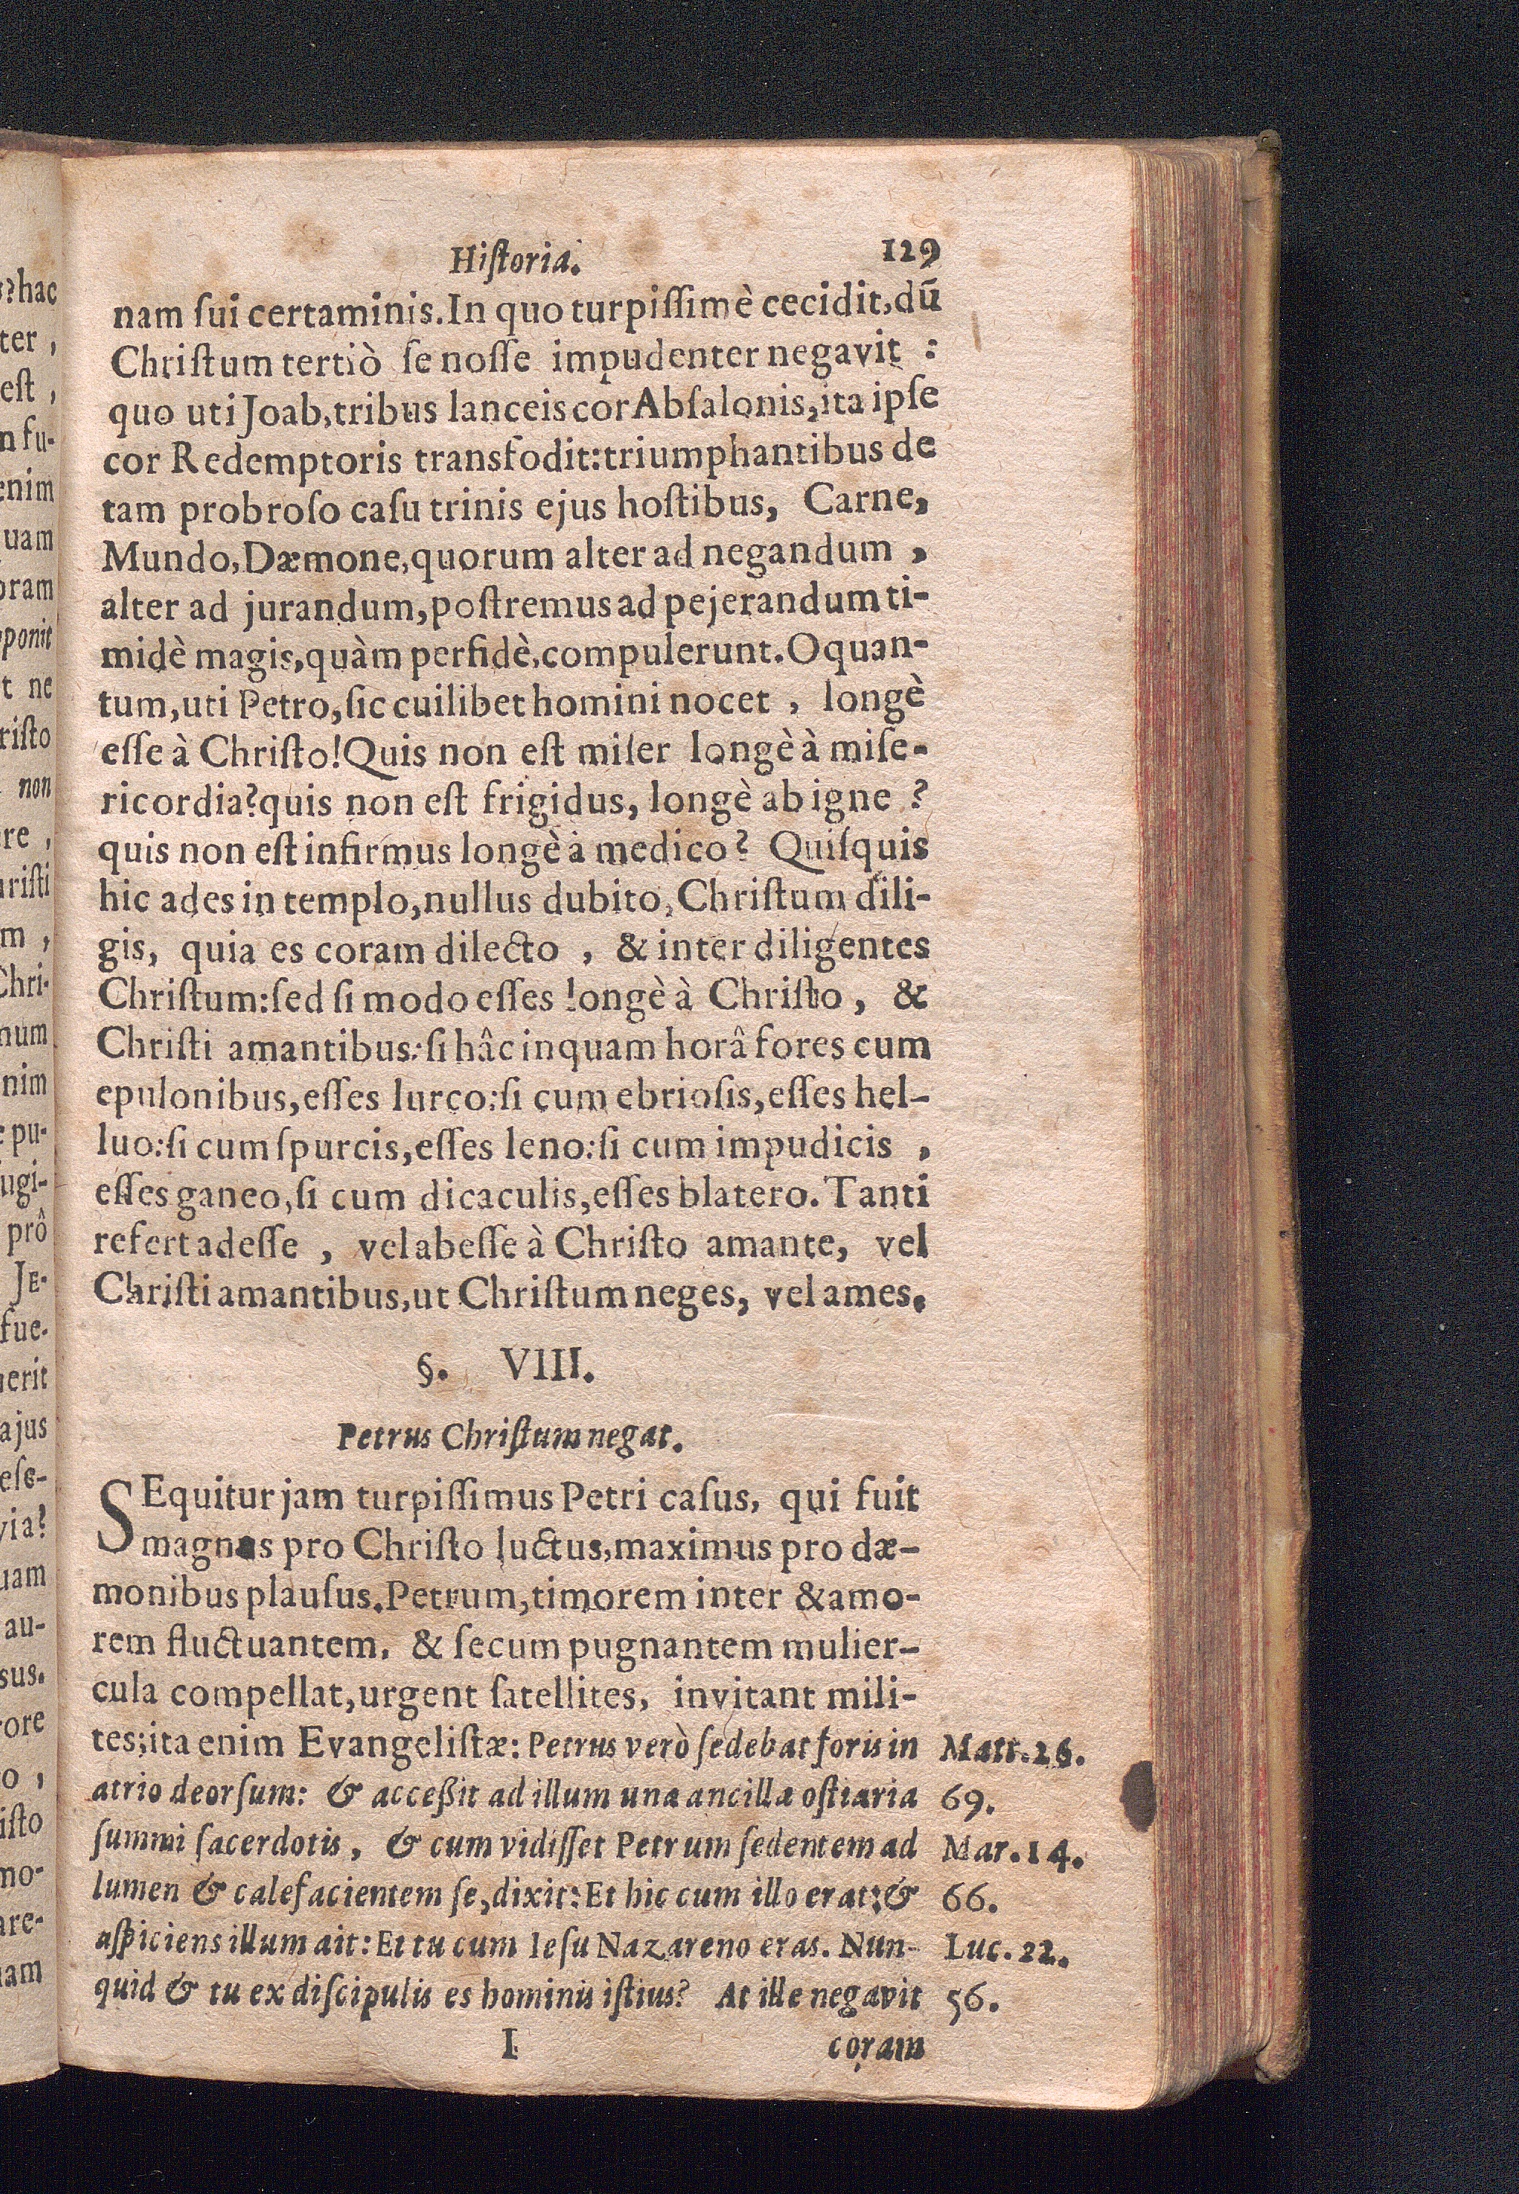 Hiſtoria. 129
nam ſui certaminis. In quo turpiſſimè cecidit, dū
Chriſtum tertiò ſe noſſe impudenter negavit :
quo uti Joab, tribus lanceis cor Abſalonis, ita ipſe
cor Redemptoris transfodit: triumphantibus de
tam probroſo caſu trinis ejus hoſtibus, Carne,
Mundo, Dæmone, quorum alter ad negandum ,
alter ad jurandum, poſtremus ad pejerandum ti-
midè magis, quàm perfidè, compulerunt. O quan-
tum, uti Petro, ſic cuilibet homini nocet , longè
eſſe à Chriſto! Quis non eſt miſer longè à miſe-
ricordia? quis non eſt frigidus, longè ab igne ?
quis non eſt infirmus longè à medico? Quiſquis
hic ades in templo, nullus dubito, Chriſtum dili-
gis, quia es coram dilecto , & inter diligentes
Chriſtum: ſed ſi modo eſſes longè à Chriſto, &
Chriſti amantibus: ſi hâc inquam horâ fores cum
epulonibus, eſſes lurco: ſi cum ebrioſis, eſſes hel-
luo: ſi cum ſpurcis, eſſes leno: ſi cum impudicis ,
eſſes ganeo, ſi cum dicaculis, eſſes blatero. Tanti
refert adeſſe , vel abeſſe à Chriſto amante, vel
Chriſti amantibus, ut Chriſtum neges, vel ames.
§. VIII.
Petrus Chriſtum negat.
SEquitur jam turpiſſimus Petri caſus, qui fuit
magnus pro Chriſto luctus, maximus pro dæ-
monibus plauſus. Petrum, timorem inter & amo-
rem fluctuantem, & ſecum pugnantem mulier-
cula compellat, urgent ſatellites, invitant mili-
tes; ita enim Evangeliſtæ: Petrus verò ſedebat foris in Matt. 26.
atrio deorſum: & acceßit ad illum una ancilla oſtiaria 69.
ſummi ſacerdotis, & cum vidiſſet Petrum ſedentem ad Mar. 14.
lumen & calefacientem ſe, dixit: Et hic cum illo erat: & 66.
aſpiciens illum ait: Et tu cum Ieſu Nazareno eras. Nun- Luc. 22.
quid & tu ex diſcipulis es hominis iſtius? At ille negavit 56.
I coram